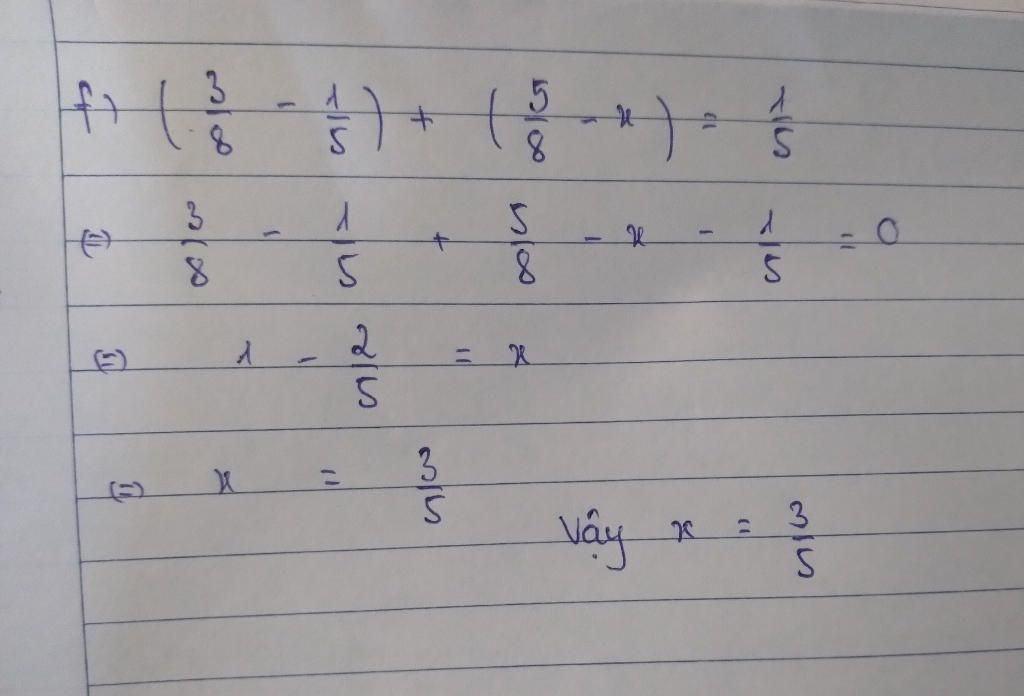 f) (3/8 - 1/5) + (5/8 - x) = 1/5
(=) 3/8 - 1/5 + 5/8 - x - 1/5 = 0
(=) 1 - 2/5 = x
(=) x = 3/5
Vậy x = 3/5